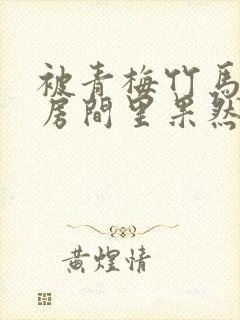 被青梅竹馬
房間里果然
黄煌情